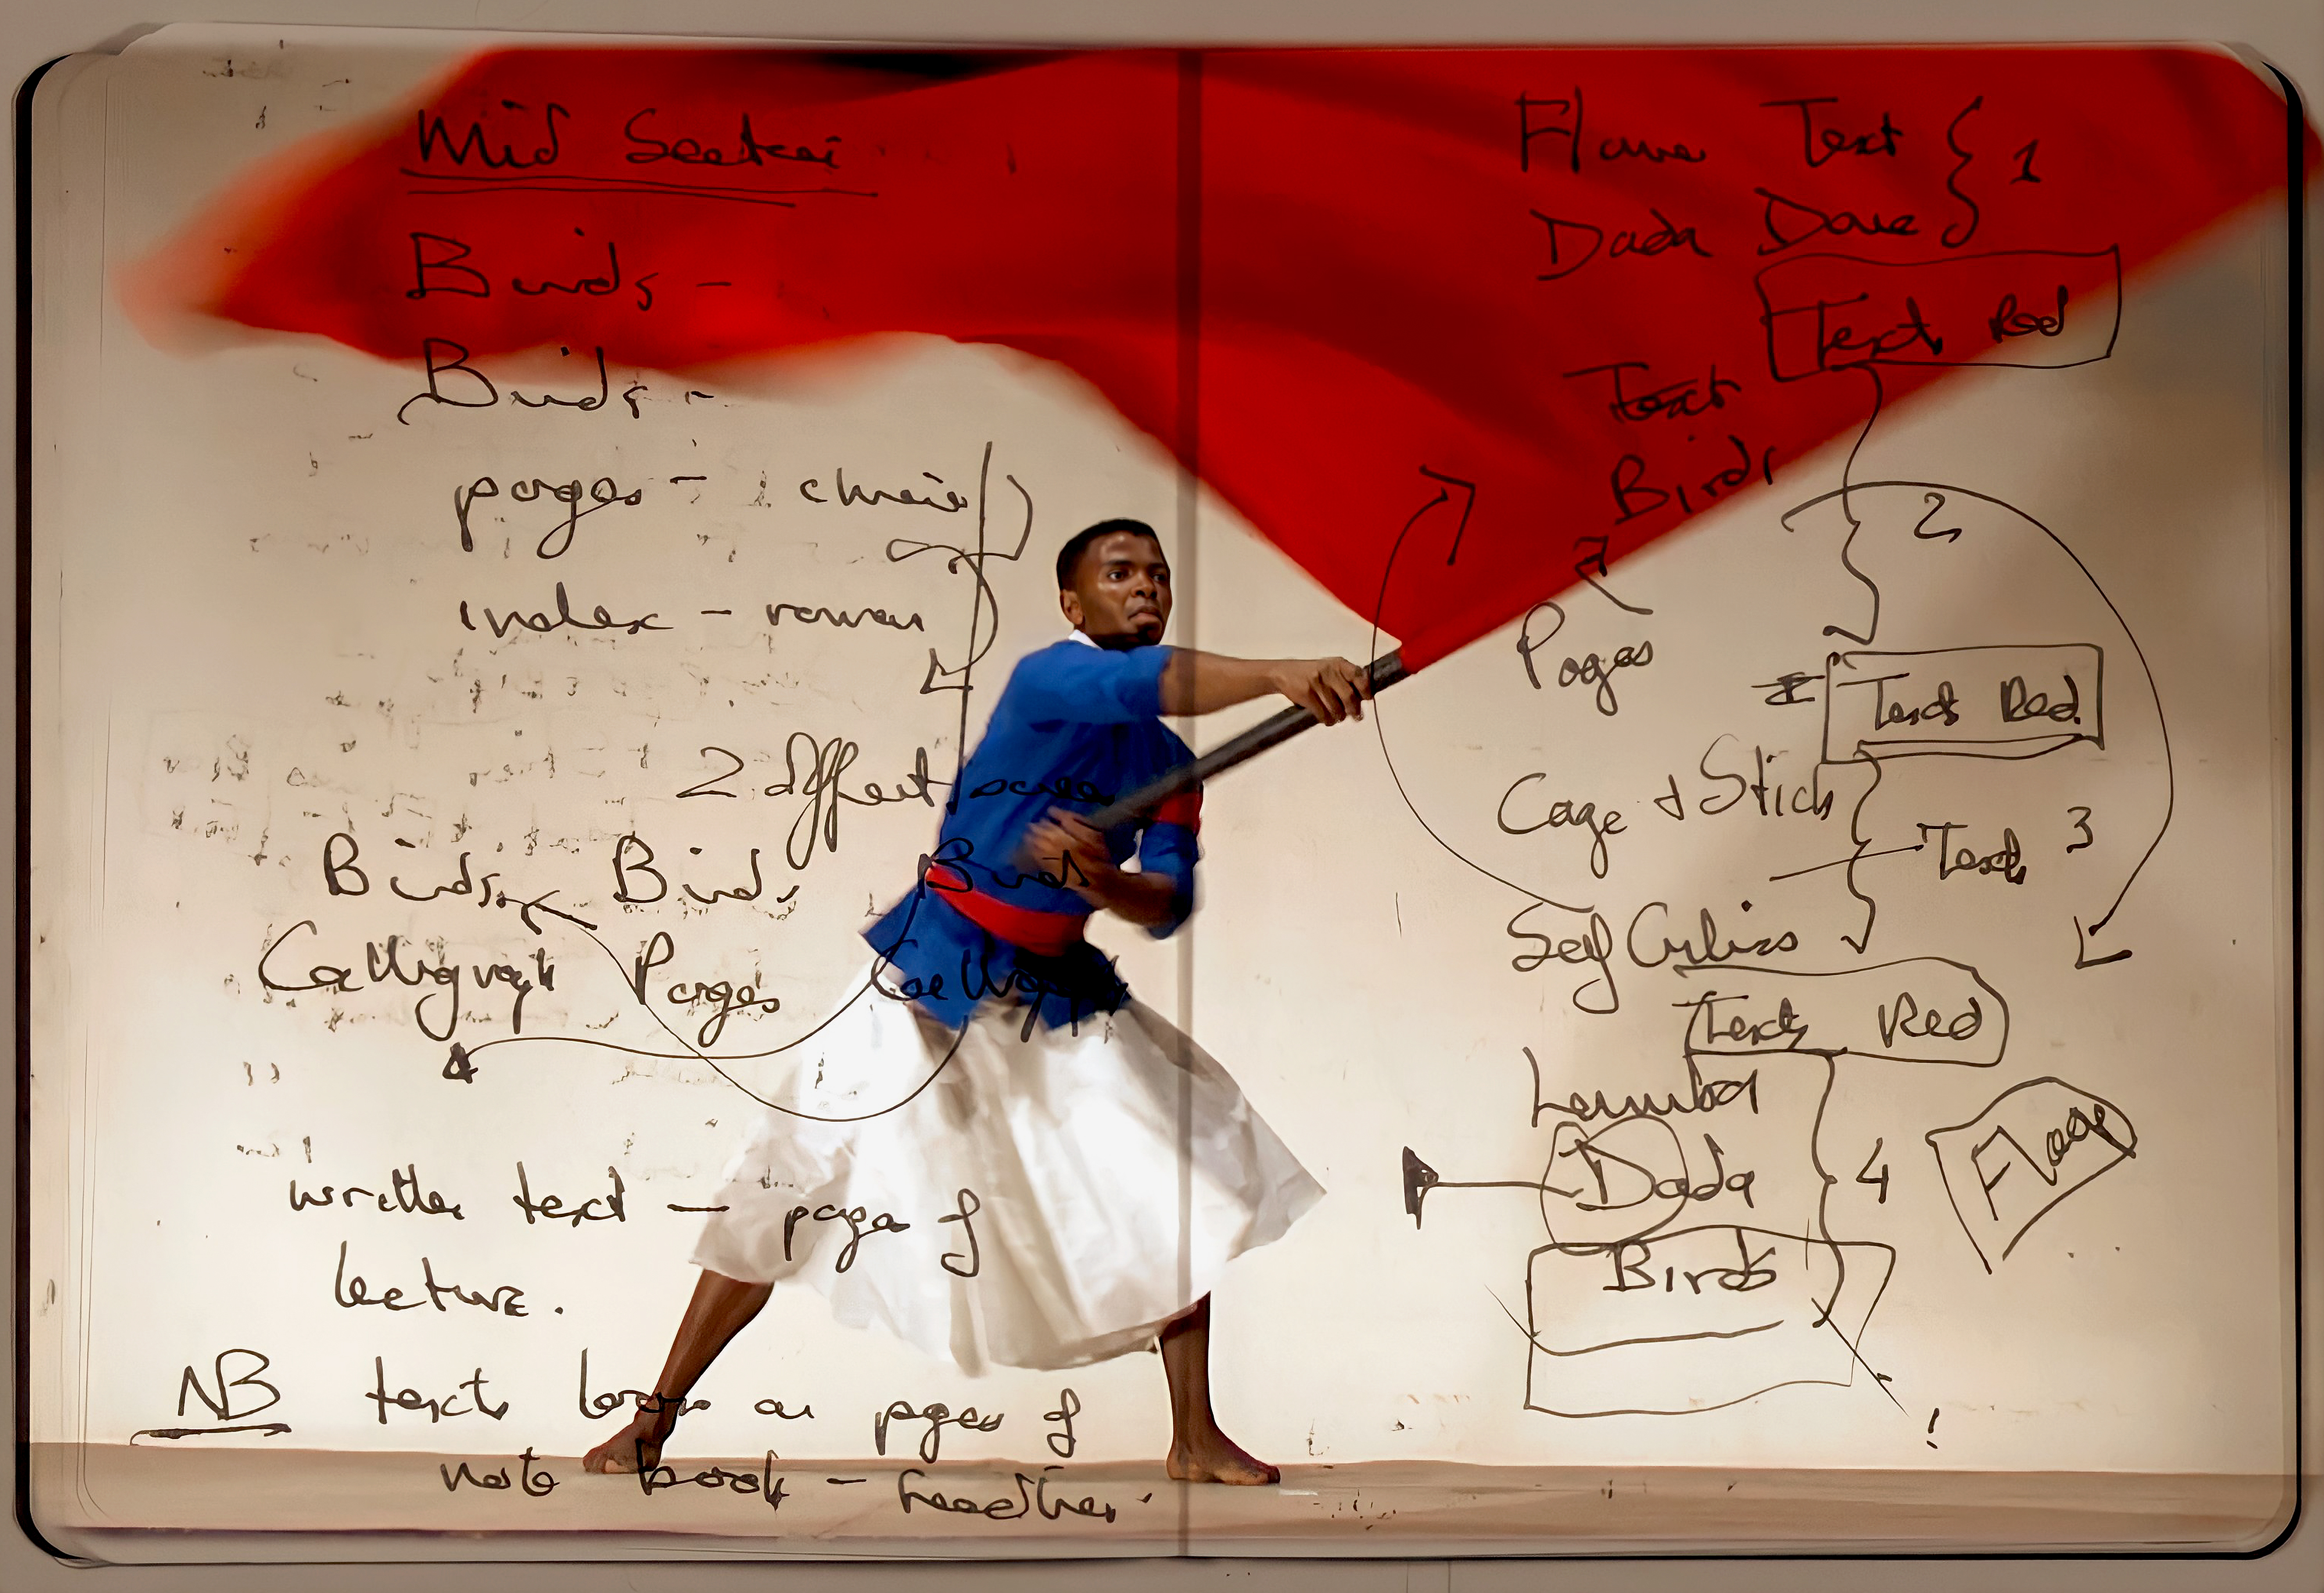 Mid Section
Birds -
Birds -
pages - chair
index - rowan
2 different screen
Birds Birds Birds
Calligraph Pages Calligraph
written text - page of
lecture.
NB text looks as pages of
note book -
Text } 1
Dada Dove
Text Red
Text
Birds
2
Pages
Text Red
Cage + Stick
Text 3
Self
Text Red
Dada 4
Flag
Birds
!